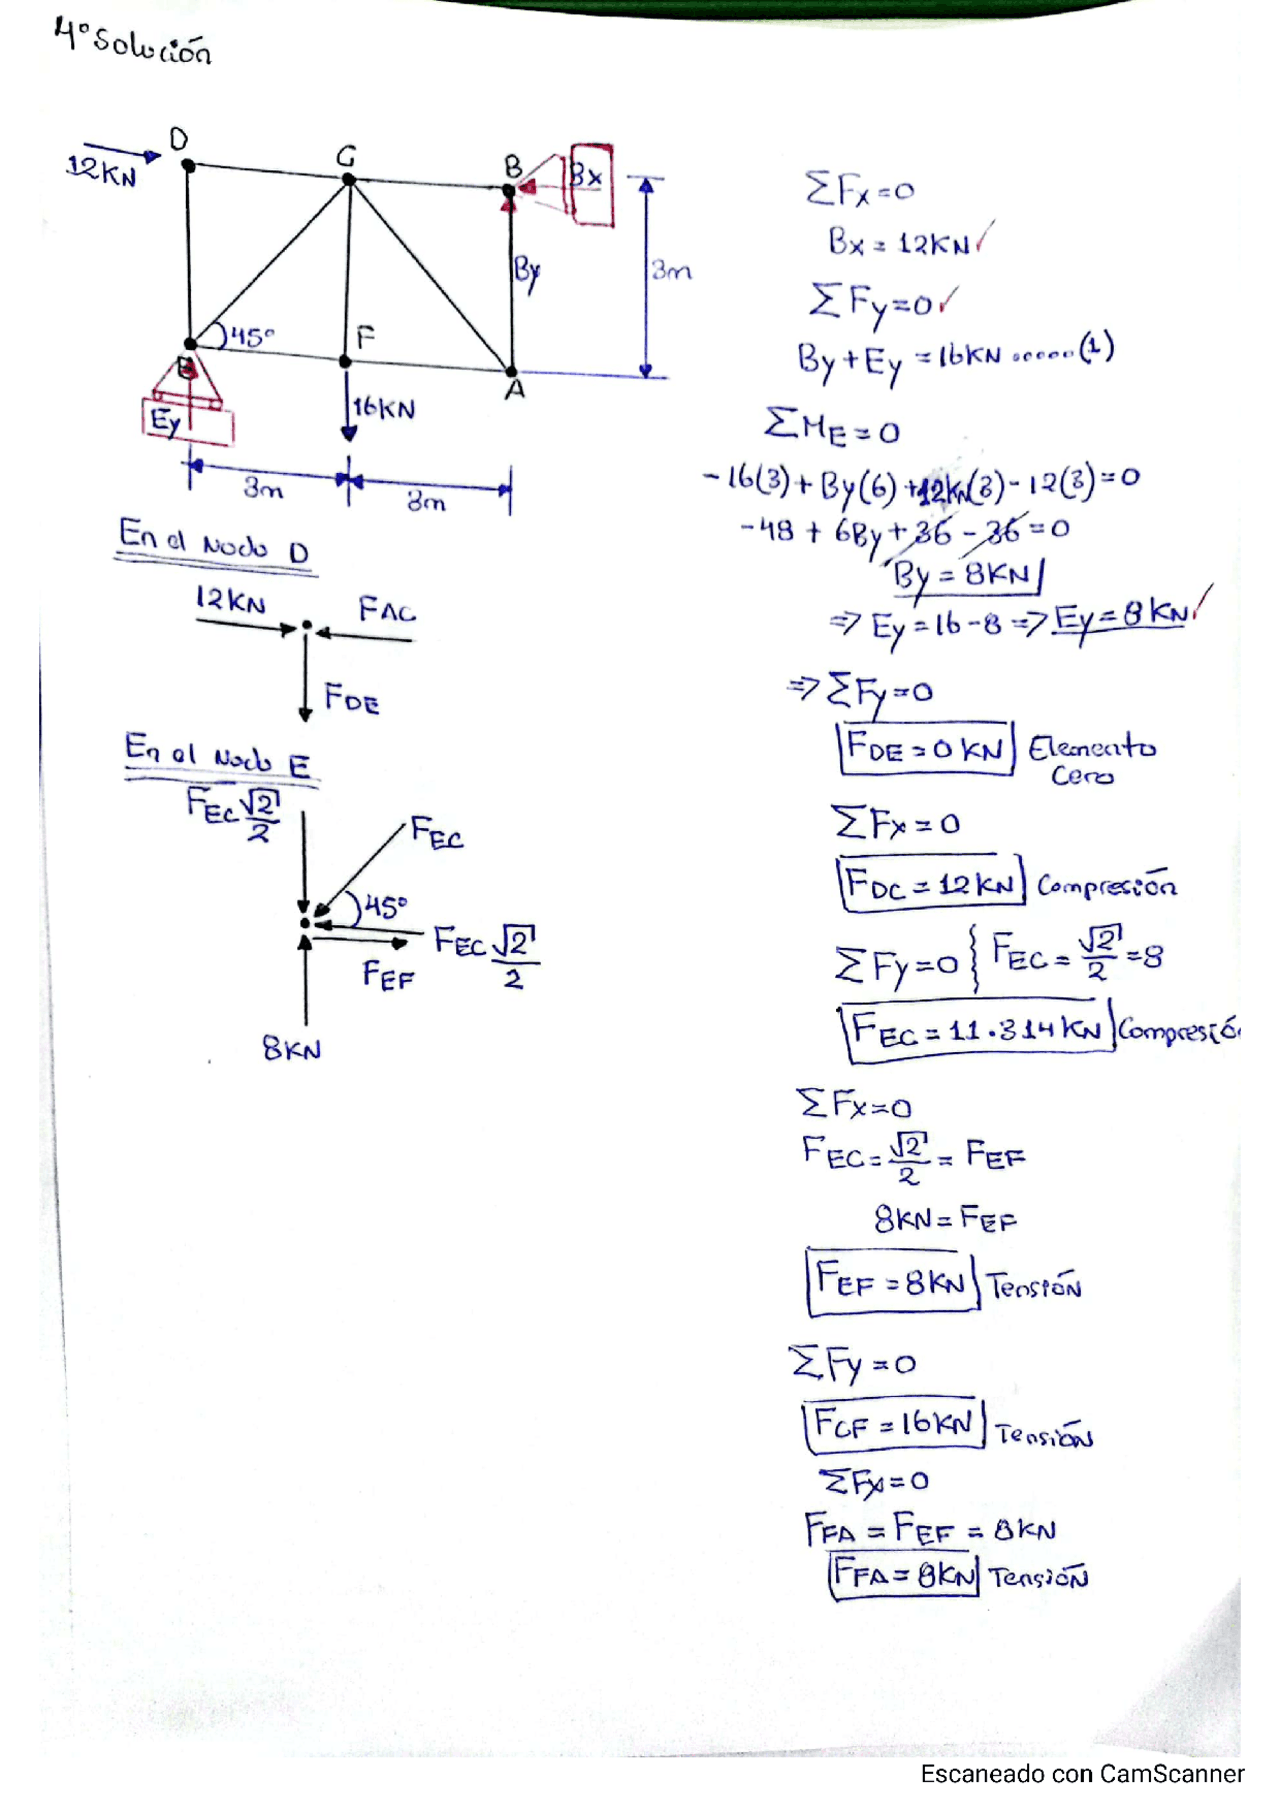 4° Solución
12KN
D
C
B
Bx
By
3m
45°
F
E
A
Ey
16KN
3m
3m
ΣFx=0
Bx = 12KN ✓
ΣFy=0 ✓
By + Ey = 16KN ......(1)
ΣME=0
-16(3)+By(6)+12KN(3)-12(3)=0
-48 + 6By + 36 - 36 = 0
By = 8KN
=> Ey = 16-8 => Ey = 8KN ✓
En el Nodo D
12KN
FAC
FDE
=> ΣFy=0
FDE = 0 KN Elemento
Cero
ΣFx = 0
FDC = 12KN Compresión
En el Nodo E
FEC √2/2
FEC
45°
FEC √2/2
FEF
8KN
ΣFy=0 { FEC = √2/2 = 8
FEC = 11.314KN Compresió
ΣFx=0
FEC = √2/2 = FEF
8KN = FEF
FEF = 8KN Tensión
ΣFy = 0
FCF = 16KN Tensión
ΣFx=0
FFA = FEF = 8KN
FFA = 8KN Tensión
Escaneado con CamScanner